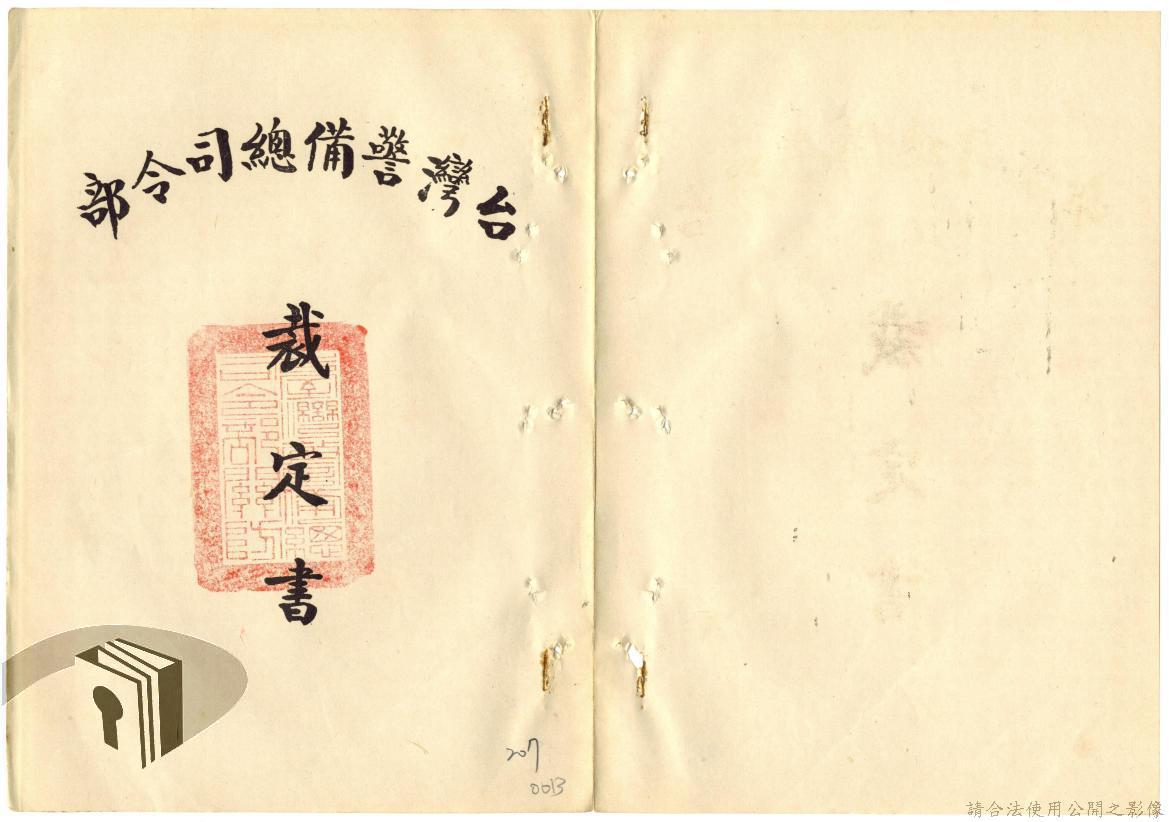 台灣警備總司令部
裁定書
207
0013
請合法使用公開之影像